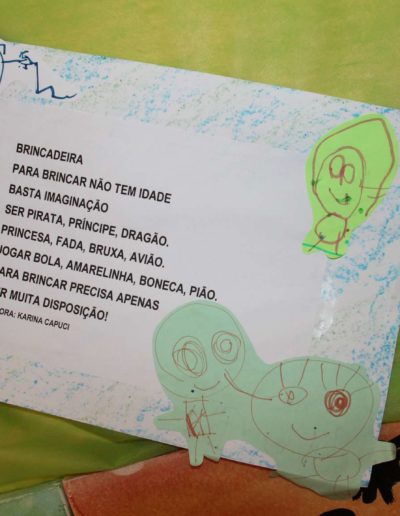 BRINCADEIRA
PARA BRINCAR NÃO TEM IDADE
BASTA IMAGINAÇÃO
SER PIRATA, PRÍNCIPE, DRAGÃO.
PRINCESA, FADA, BRUXA, AVIÃO.
JOGAR BOLA, AMARELINHA, BONECA, PIÃO.
PARA BRINCAR PRECISA APENAS
ER MUITA DISPOSIÇÃO!
ORA: KARINA CAPUCI